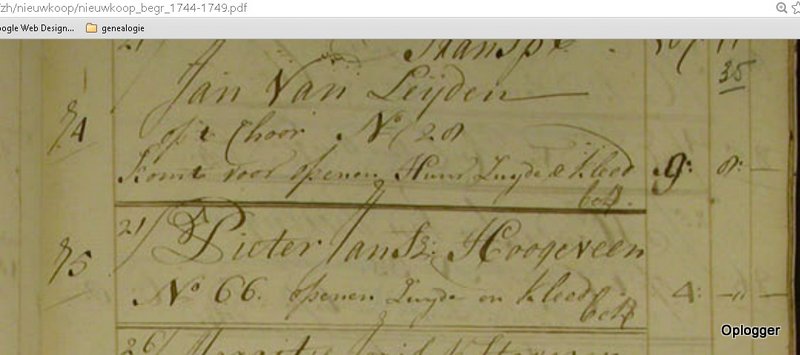 /zh/nieuwkoop/nieuwkoop_begr_1744-1749.pdf
oogle Web Design... genealogie
21/ Transpt
35
Jan Van Leijden
74 op't Choor No 28
komt voor openen Huur Luyde & kleed 9: 8: —
bet.
21/ Pieter Jansz: Hoogeveen
75 No 66. openen Luyde en kleed 4: —
bet
26/
Oplogger